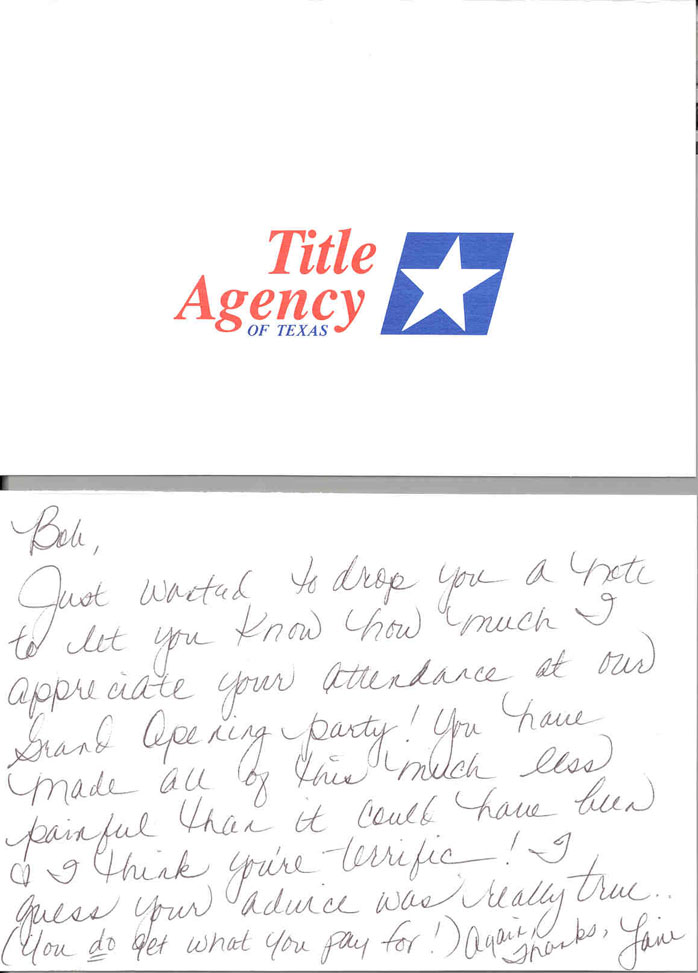 Title
Agency
OF TEXAS
Bob,
Just wanted to drop you a note
to let you know how much I
appreciate your attendance at our
Grand Opening party! You have
made all of this much less
painful than it could have been
& I think you're terrific! I
guess your advice was really true..
(You do get what you pay for!) Again,
Thanks,